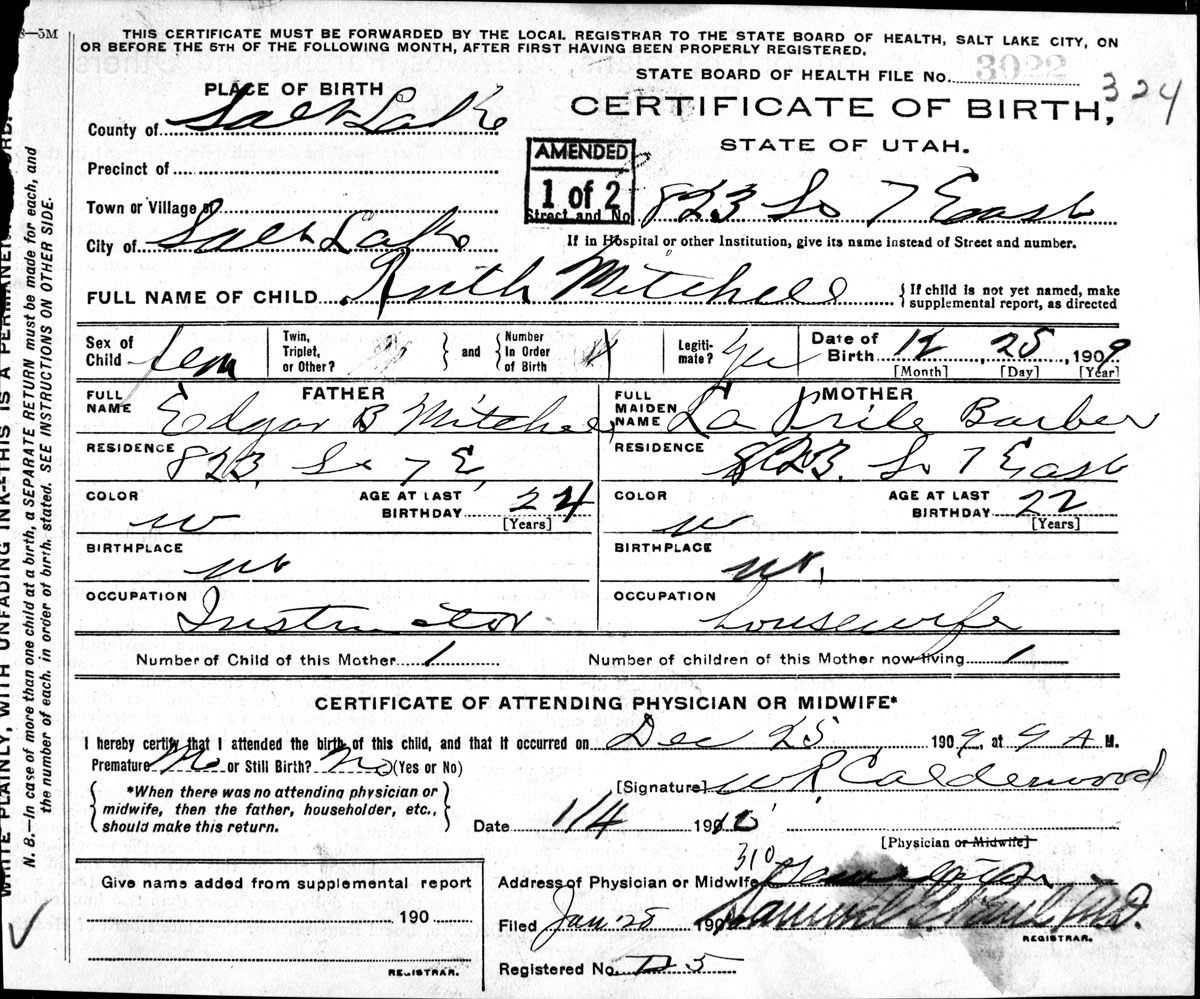 8—5M
THIS CERTIFICATE MUST BE FORWARDED BY THE LOCAL REGISTRAR TO THE STATE BOARD OF HEALTH, SALT LAKE CITY, ON
OR BEFORE THE 5TH OF THE FOLLOWING MONTH, AFTER FIRST HAVING BEEN PROPERLY REGISTERED.
STATE BOARD OF HEALTH FILE No. 3022
324
PLACE OF BIRTH
CERTIFICATE OF BIRTH,
STATE OF UTAH.
County of Salt Lake
Precinct of
Town or Village of
AMENDED
1 of 2
Street and No. 823 So 7 East
City of Salt Lake
If in Hospital or other Institution, give its name instead of Street and number.
FULL NAME OF CHILD Ruth Mitchell
{ If child is not yet named, make
supplemental report, as directed
Sex of Child fem
Twin, Triplet, or Other?
} and {
Number In Order of Birth
Legiti-mate? Yes
Date of Birth 12, 25, 1909
[Month] [Day] [Year]
FATHER
FULL NAME Edgar B Mitchell
MOTHER
FULL MAIDEN NAME La Prile Barber
RESIDENCE 823 So 7 E
RESIDENCE 823. So 7 East
COLOR w
AGE AT LAST BIRTHDAY 24
[Years]
COLOR w
AGE AT LAST BIRTHDAY 22
[Years]
BIRTHPLACE ut
BIRTHPLACE ut.
OCCUPATION Instructor
OCCUPATION housewife
Number of Child of this Mother 1
Number of children of this Mother now living 1
CERTIFICATE OF ATTENDING PHYSICIAN OR MIDWIFE*
I hereby certify that I attended the birth of this child, and that it occurred on Dec 25 1909, at 9 A M.
Premature No or Still Birth? No (Yes or No)
[Signature] W R Calderwood
{ *When there was no attending physician or
midwife, then the father, householder, etc.,
should make this return. }
Date 1/4 1910
[Physician or Midwife]
Give name added from supplemental report
190
REGISTRAR.
Address of Physician or Midwife 310
Filed Jan 28 190
Samuel G. Paul M.D.
REGISTRAR.
Registered No. 5
WRITE PLAINLY, WITH UNFADING INK—THIS IS A PERMANENT RECORD.
N. B.—In case of more than one child at a birth, a SEPARATE RETURN must be made for each, and
the number of each, in order of birth, stated. SEE INSTRUCTIONS ON OTHER SIDE.